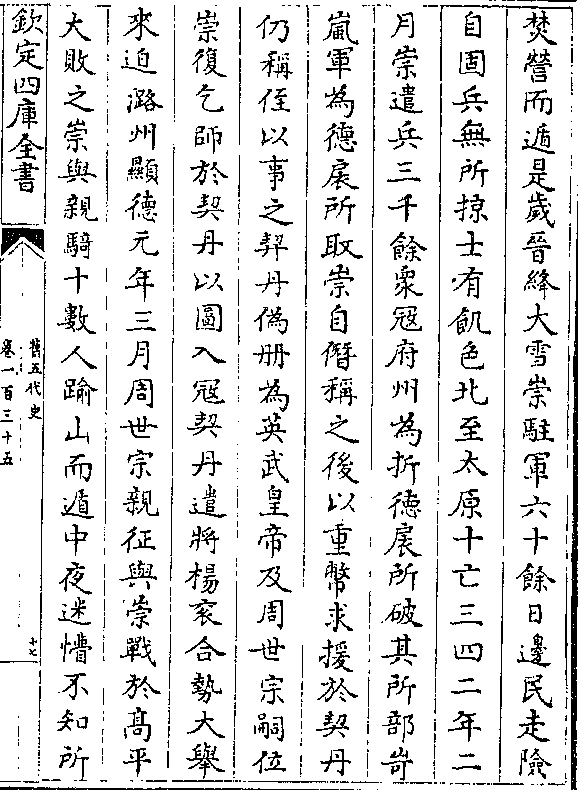 焚營而遁是歲晉絳大雪崇駐軍六十餘日邊民走險
自固兵無所掠士有飢色北至太原十亡三四二年二
月崇遣兵三千餘衆冦府州為折德扆所破其所部岢
嵐軍為德扆所取崇自僭稱之後以重幣求援於契丹
仍稱侄以事之契丹偽册為英武皇帝及周世宗嗣位
崇復乞師於契丹以圖入冦契丹遣將楊衮合勢大舉
來迫潞州顯德元年三月周世宗親征與崇戰於髙平
大敗之崇與親騎十數人踰山而遁中夜迷懵不知所
欽定四庫全書
舊五代史
卷一百三十五
十七